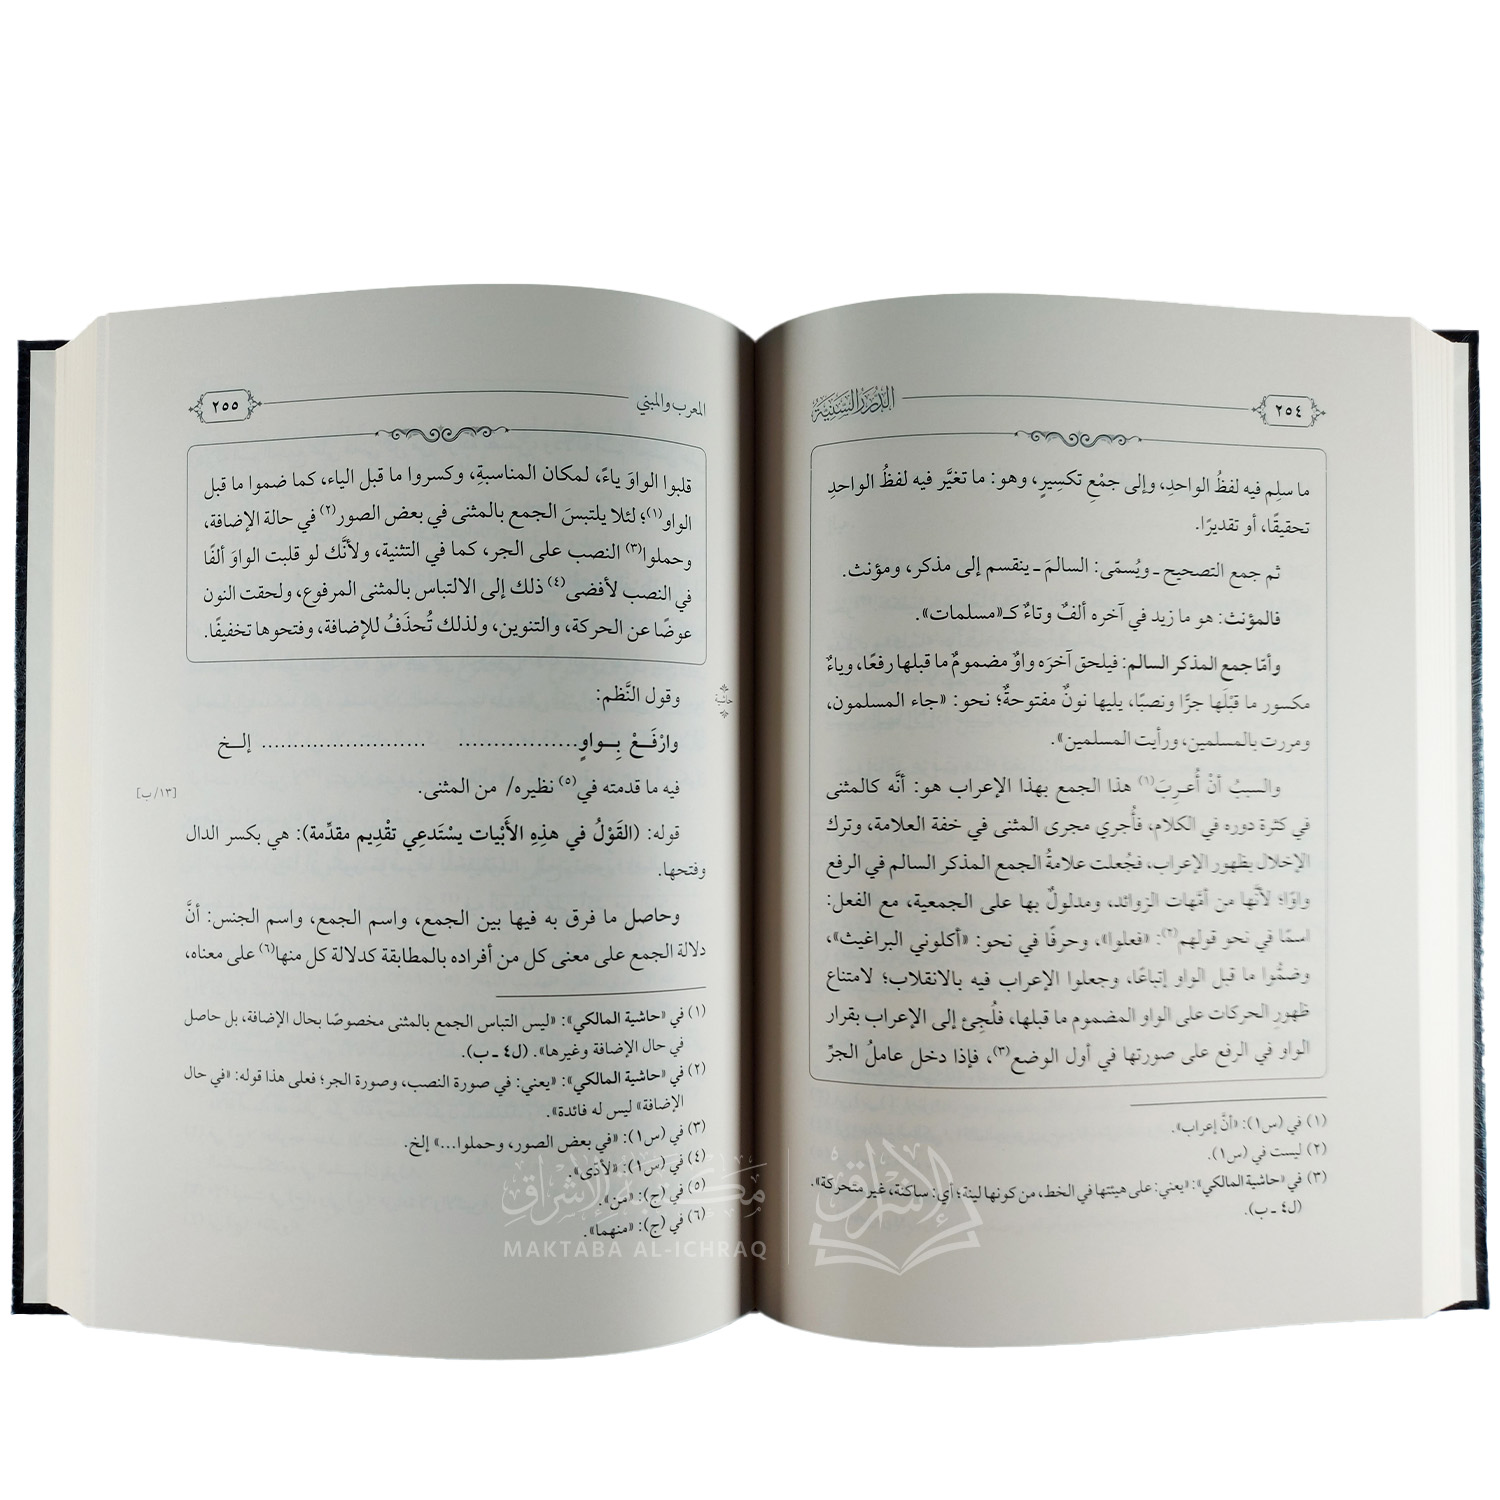 ٢٥٤
الدرر السنية
ما سلِم فيه لفظُ الواحدِ، وإلى جمْعِ تكسِيرٍ، وهو: ما تغيَّر فيه لفظُ الواحدِ
تحقيقًا، أو تقديرًا.
ثم جمع التصحيح ـ ويُسمّى: السالمَ ـ ينقسم إلى مذكر، ومؤنث.
فالمؤنث: هو ما زيد في آخره ألفٌ وتاءٌ كـ«مسلمات».
وأمّا جمع المذكر السالم: فيلحق آخرَه واوٌ مضمومٌ ما قبلها رفعًا، وياءٌ
مكسور ما قبْلَها جرًّا ونصبًا، يليها نونٌ مفتوحةٌ؛ نحو: «جاء المسلمون،
ومررت بالمسلمين، ورأيت المسلمين».
والسببُ أنْ أُعـرِبَ(١) هذا الجمع بهذا الإعراب هو: أنَّه كالمثنى
في كثرة دوره في الكلام، فأُجري مجرى المثنى في خفة العلامة، وترك
الإخلال بظهور الإعراب، فجُعلت علامةُ الجمع المذكر السالم في الرفع
واوًا؛ لأنَّها من أمَّهات الزوائد، ومدلولٌ بها على الجمعية، مع الفعل:
اسمًا في نحو قولهم(٢): «فعلوا»، وحرفًا في نحو: «أكلوني البراغيث»،
وضمُّوا ما قبل الواو إتباعًا، وجعلوا الإعراب فيه بالانقلاب؛ لامتناع
ظهورِ الحركات على الواو المضموم ما قبلها، فلُجِئ إلى الإعراب بقرار
الواو في الرفع على صورتها في أول الوضع(٣)، فإذا دخل عاملُ الجرِّ
(١) في (س١): «أنَّ إعراب».
(٢) ليست في (س١).
(٣) في «حاشية المالكي»: «يعني: على هيئتها في الخط، من كونها لينة؛ أي: ساكنة، غير متحركة».
(ل٤ ـ ب).
المعرب والمبني
٢٥٥
قلبوا الواوَ ياءً، لمكان المناسبةِ، وكسروا ما قبل الياء، كما ضموا ما قبل
الواو(١)؛ لئلا يلتبسَ الجمع بالمثنى في بعض الصور(٢) في حالة الإضافة،
وحملوا(٣) النصب على الجر، كما في التثنية، ولأنَّك لو قلبت الواوَ ألفًا
في النصب لأفضى(٤) ذلك إلى الالتباس بالمثنى المرفوع، ولحقت النون
عوضًا عن الحركة، والتنوين، ولذلك تُحذَفُ للإضافة، وفتحوها تخفيفًا.
حاشية
وقول النَّظم:
وارْفَـعْ بِـواوٍ................. ......................... إلـخ
فيه ما قدمته في(٥) نظيره/ من المثنى.
[١٣/ب]
قوله: (القَوْلُ في هذِهِ الأَبْيات يسْتَدعِي تقْدِيم مقدِّمة): هي بكسر الدال
وفتحها.
وحاصل ما فرق به فيها بين الجمع، واسم الجمع، واسم الجنس: أنَّ
دلالة الجمع على معنى كل من أفراده بالمطابقة كدلالة كل منها(٦) على معناه،
(١) في «حاشية المالكي»: «ليس التباس الجمع بالمثنى مخصوصًا بحال الإضافة، بل حاصل
في حال الإضافة وغيرها». (ل٤ ـ ب).
(٢) في «حاشية المالكي»: «يعني: في صورة النصب، وصورة الجر؛ فعلى هذا قوله: «في حال
الإضافة» ليس له فائدة».
(٣) في (س١): «في بعض الصور، وحملوا...» إلخ.
(٤) في (س١): «لأدّى».
(٥) في (ج): «من».
(٦) في (ج): «منهما».
مكتبة الإشراق
MAKTABA AL-ICHRAQ
الإشراق